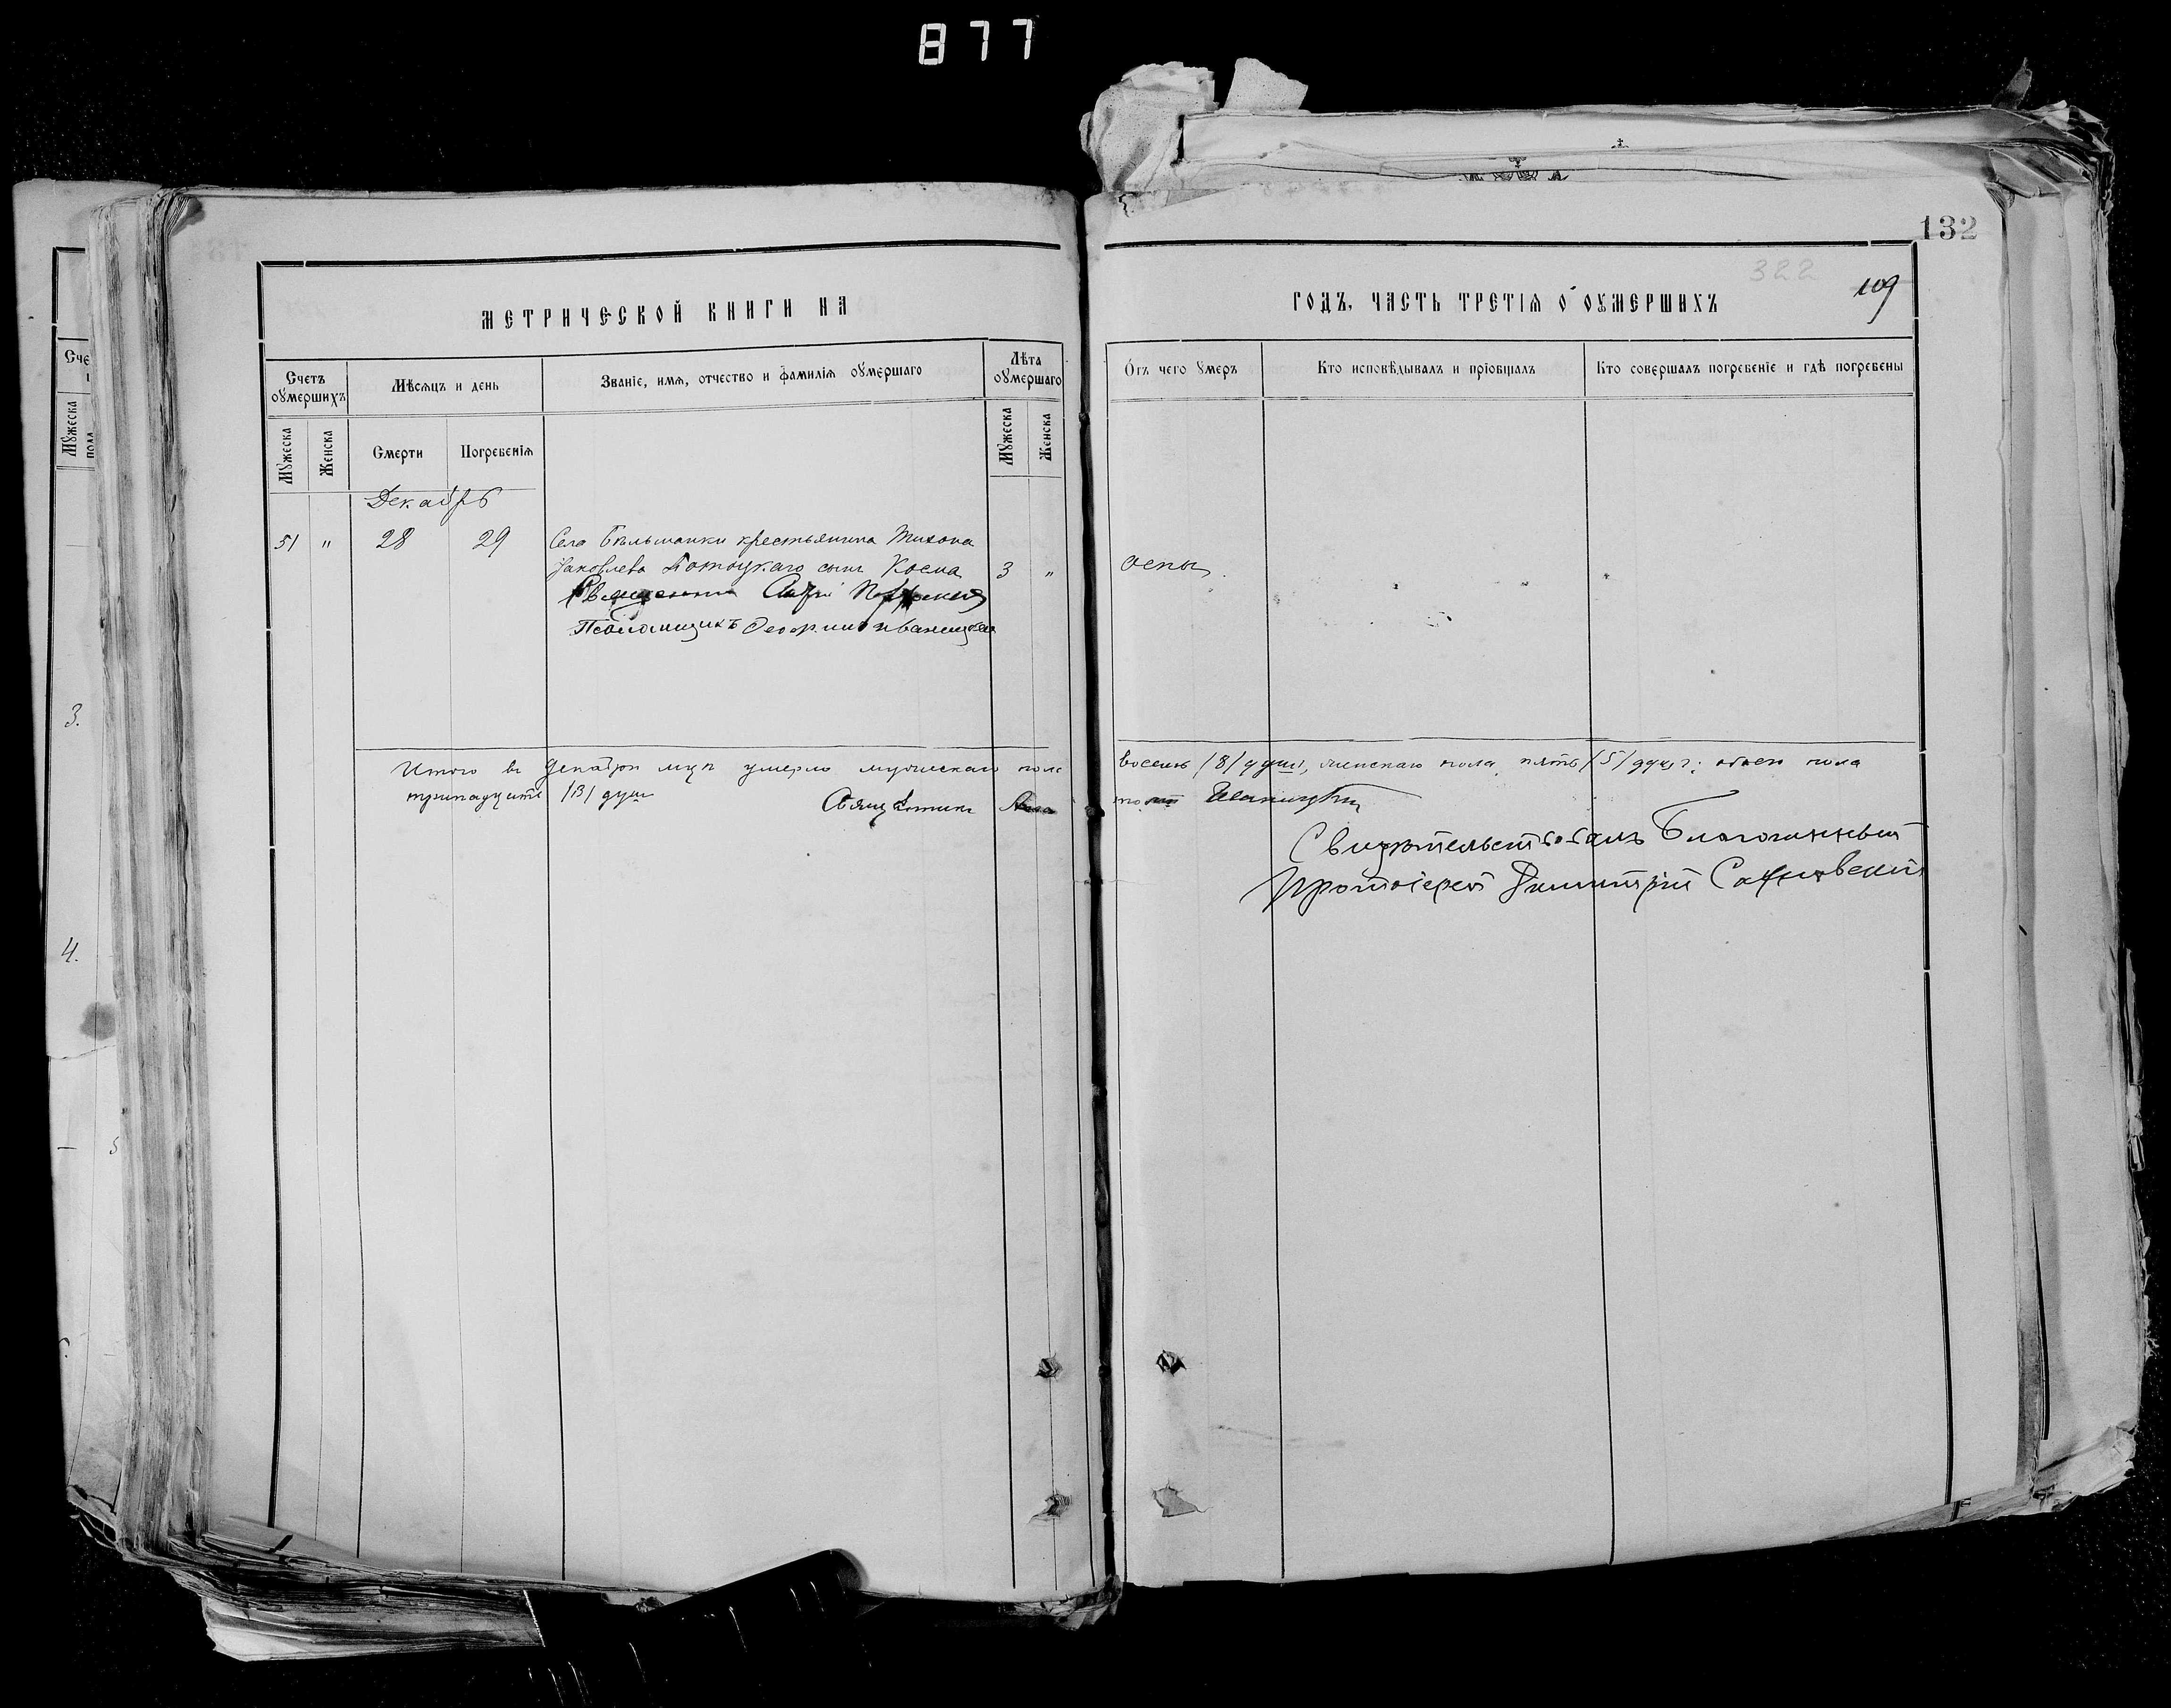 877
132
322
109
МЕТРИЧЕСКОЙ КНИГИ НА
ГОДЪ, ЧАСТЬ ТРЕТІѦ Ѻ ОУМЕРШИХЪ
Счетъ оумершихъ
Мѣсѧцъ и день
Званіе, имѧ, отчество и фамиліѧ оумершаго
Лѣта оумершаго
Отъ чего умеръ
Кто исповѣдывалъ и пріобщалъ
Кто совершалъ погребеніе и гдѣ погребены
Мужеска
Женска
Смерти
Погребеніѧ
Мужеска
Женска
Декабрь
51 " 28 29 Села Бѣльманки крестьянина Тихона
Яковлева Потоцкаго сынъ Косма 3 " оспы.
Псаломщикъ Георгій Иваницкій
Итого въ Декабрѣ мцѣ умерло мужескаго пола восемь /8/ душъ, женскаго пола пять /5/ душъ; обоего пола
тринадцать /13/ душъ
Священникъ Иваницкій
Свидѣтельствовалъ Благочинный
Протоіерей Димитрій
Сче
Мужеска
пола
3.
4.